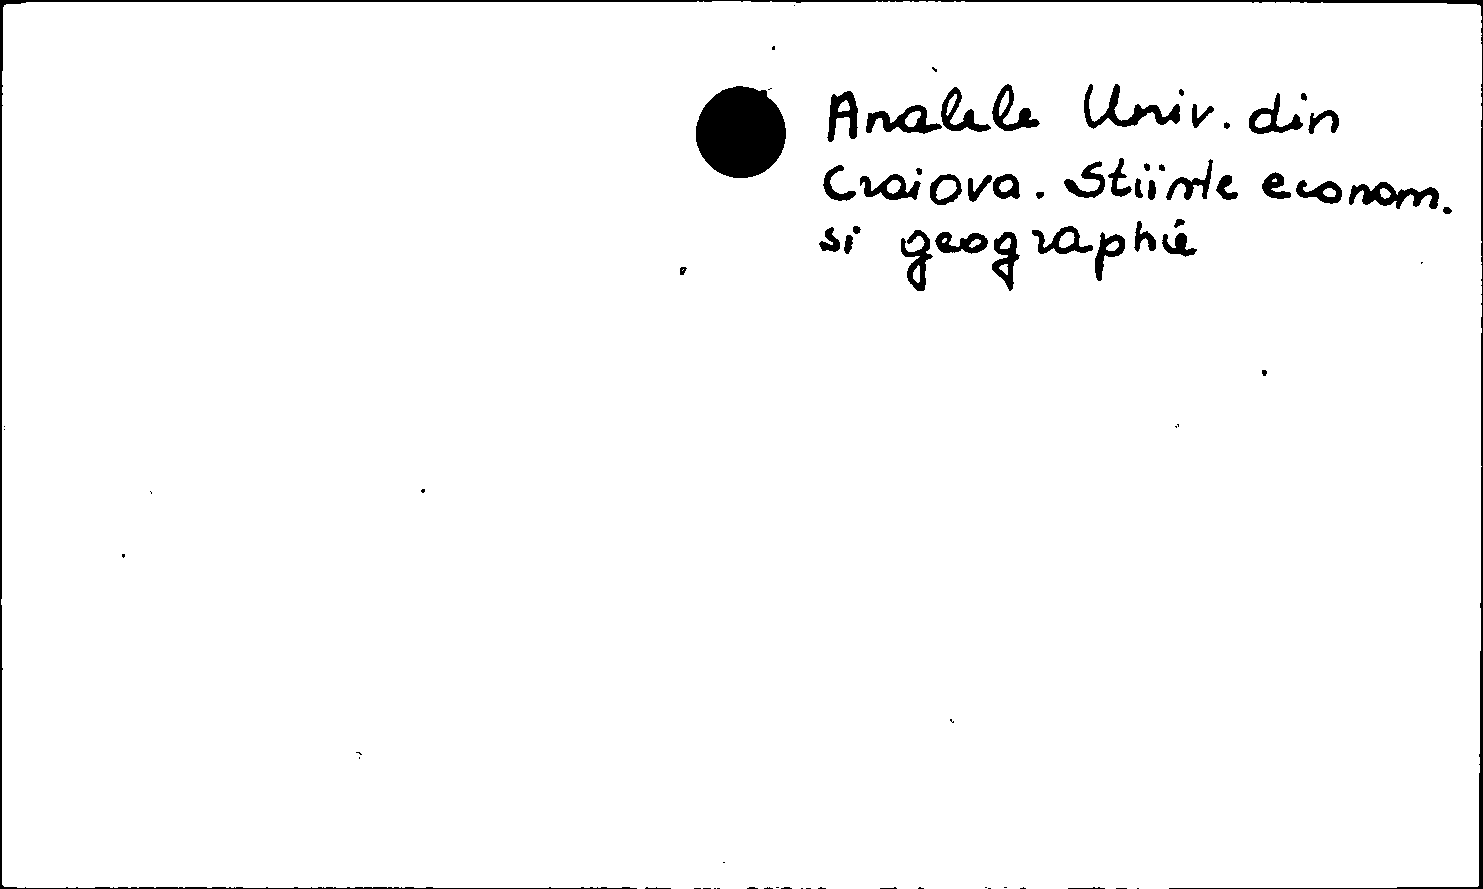 Analele Univ. din
Craiova. Stiinte econom.
si geographie